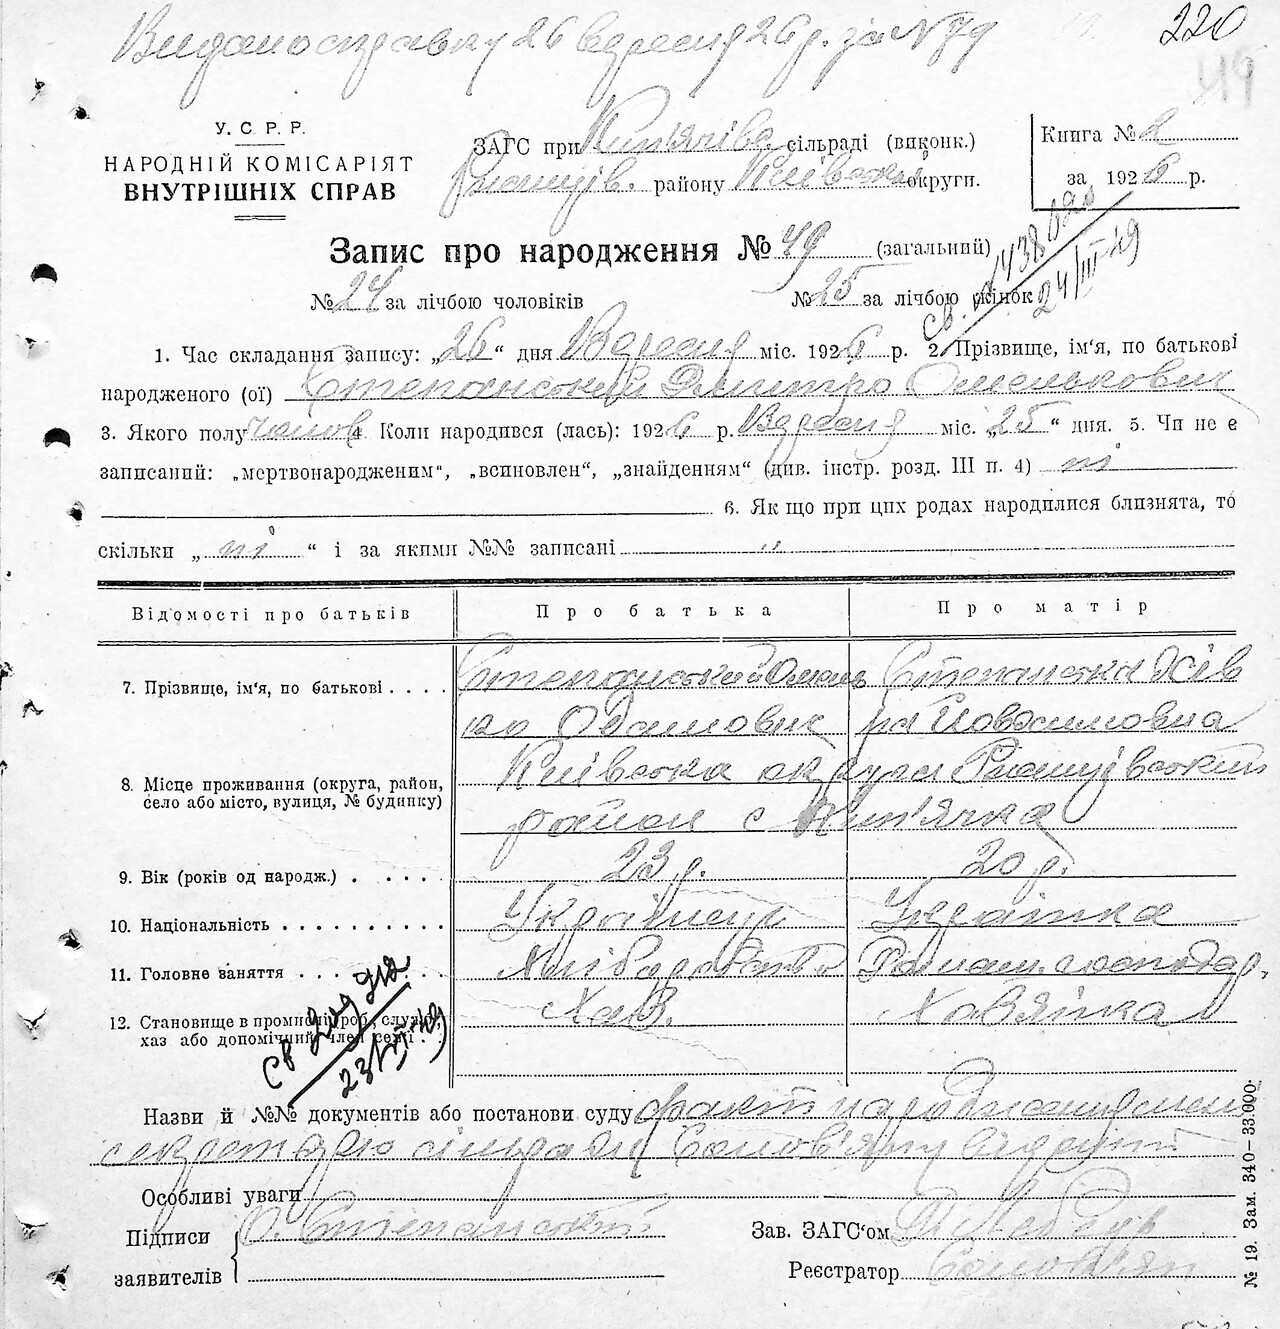 Видано справку 26 вересня 26 р. за № 79
220
49
У. С. Р. Р.
НАРОДНІЙ КОМІСАРІЯТ
ВНУТРІШНІХ СПРАВ
ЗАГС при Кип'ячів. сільраді (виконк.)
Ржищів. району Київської округи.
Книга № 2
за 1926 р.
Запис про народження № 49 (загальний)
№ 24 за лічбою чоловіків № 25 за лічбою жінок
24/III-49
1. Час складання запису: „26“ дня Вересня міс. 1926 р. 2. Прізвище, ім'я, по батькові
народженого (ої) Степанський Дмитро Омелькович
3. Якого полу чолов 4 Коли народився (лась): 1926 р. Вересня міс. „25“ дня. 5. Чи не є
записаний: „мертвонародженим“, „всиновлен“, „знайденням“ (див. інстр. розд. III п. 4) ні
6. Як що при цих родах народилися близнята, то
скільки „ ні “ і за якими №№ записані "
Відомості про батьків Про батька Про матір
7. Прізвище, ім'я, по батькові . . . . Степанський Омель Степанська Хів
ко Адамович ря Йовхимовна
8. Місце проживання (округа, район, село або місто, вулиця, № будинку) Київська округа Ржищівський
район с Кип'ячка
9. Вік (років од народж.) . . . . . 23 р. 20 р.
10. Національність . . . . . . . . . . Українець Українка
11. Головне заняття . . . . . . . . Хліборобство Домаш. господар.
12. Становище в промислі (роб., служб., хаз або допомічний член сем'ї . . Хаз.
23/III-49
Назви й №№ документів або постанови суду факт народження
секретарю сільради Солов'яну відомий
Особливі уваги
Підписи заявителів О. Степанський
Зав. ЗАГС'ом
Реєстратор Солов'ян
№ 19. Зам. 340—33.000.